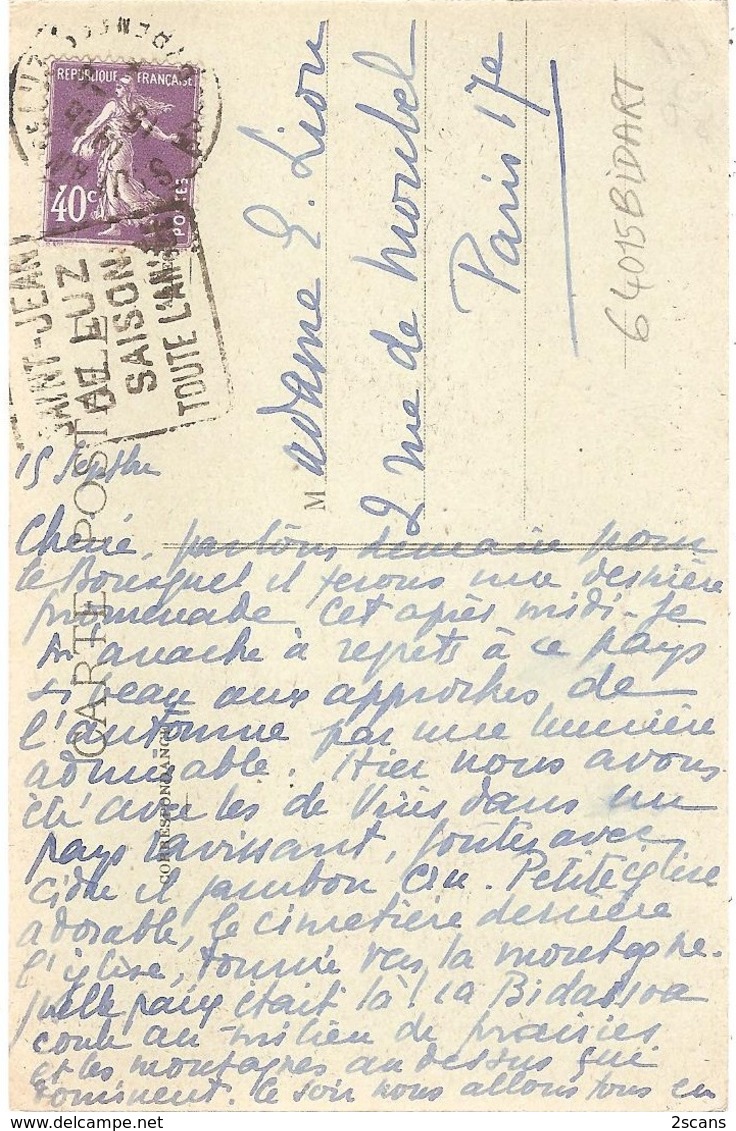 REPUBLIQUE FRANÇAISE
40c
POSTES
SAINT-JEAN
DE LUZ
SAISON
TOUTE L'ANNÉE
CARTE POSTALE
CORRESPONDANCE
M adame E. Lion
2 rue de
Paris 17e
64015 BIDART
15 Septbre
Cherie, partons demain pour
le Bousquet et ferons une dernière
promenade cet après midi - Je
m'arrache à regrets à ce pays
si beau aux approches de
l'automne par une lumière
admirable. Hier nous avons
été avec les de dans un
pays ravissant, goûter avec
cidre et jambon cru. Petite église
adorable, le cimetière derrière
l'église, tourné vers la montagne.
quelle paix était là! La Bidassoa
coule au milieu de prairies
et les montagnes au dessus qui
dominent. Ce soir nous allons tous en
2scans